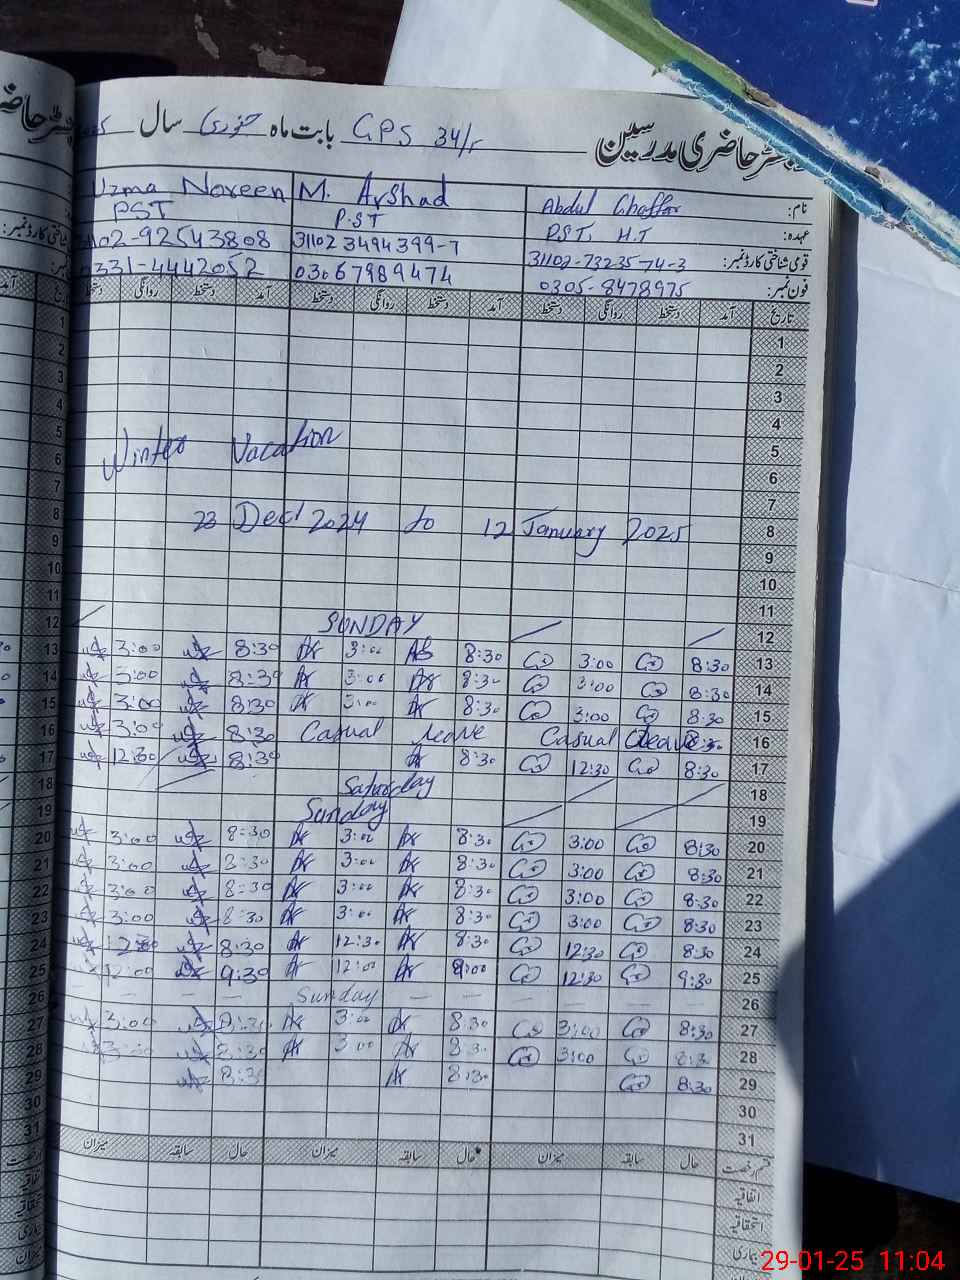 رجسٹر حاضری مدرسین GPS 34/r بابت ماہ جنوری سال
نام: Abdul Ghaffar M. Arshad Uzma Noreen
عہدہ: P.S.T, H.T P.ST PST
قومی شناختی کارڈ نمبر: 31102-73235-74-3 31102 3494399-7 31102-92543808
فون نمبر: 0305-8478975 03067989474 0331-4442052
تاریخ آمد دستخط روانگی دستخط آمد دستخط روانگی دستخط آمد دستخط روانگی دستخط
1
2
3
4
5
6 Winter Vacation
7
8 23 Dec 2024 to 12 January 2025
9
10
11
12 SUNDAY
13 8:30 3:00 8:30 3:00 8:30 3:00
14 8:30 3:00 8:30 3:00 8:30 3:00
15 8:30 3:00 8:30 3:00 8:30 3:00
16 Casual Leave Casual leave 8:30 3:00
17 8:30 12:30 8:30 8:30 12:30
18 Saturday
19 Sunday
20 8:30 3:00 8:30 3:00 8:30 3:00
21 8:30 3:00 8:30 3:00 8:30 3:00
22 8:30 3:00 8:30 3:00 8:30 3:00
23 8:30 3:00 8:30 3:00 8:30 3:00
24 8:30 12:30 8:30 12:30 8:30 12:30
25 9:30 12:30 9:00 12:00 9:30 12:00
26 Sunday
27 8:30 3:00 8:30 3:00 8:30 3:00
28 8:30 3:00 8:30 3:00 8:30 3:00
29 8:30 8:30 8:30
30
31
قسم رخصت حال سابقہ میزان حال سابقہ میزان حال سابقہ میزان
اتفاقیہ
استحقاقیہ
بیماری
29-01-25 11:04